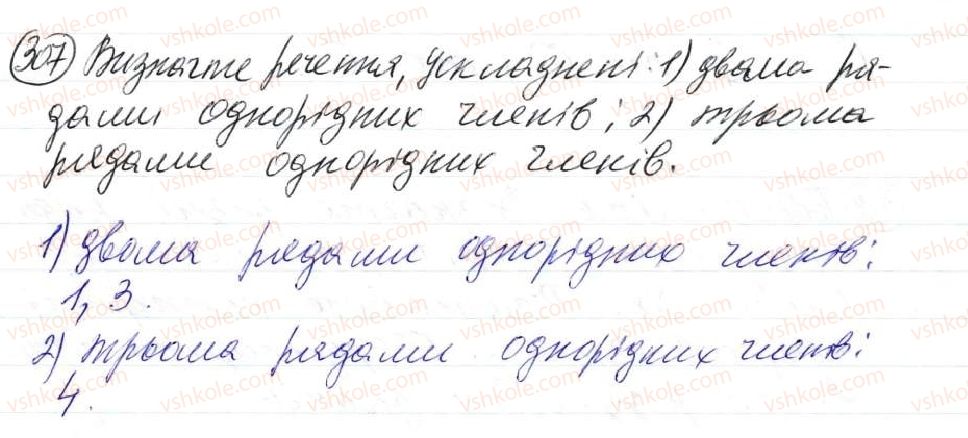 307 Визначте речення, ускладнені: 1) двома ря-
дами однорідних членів; 2) трьома
рядами однорідних членів.
1) двома рядами однорідних членів:
1, 3.
2) трьома рядами однорідних членів:
4.